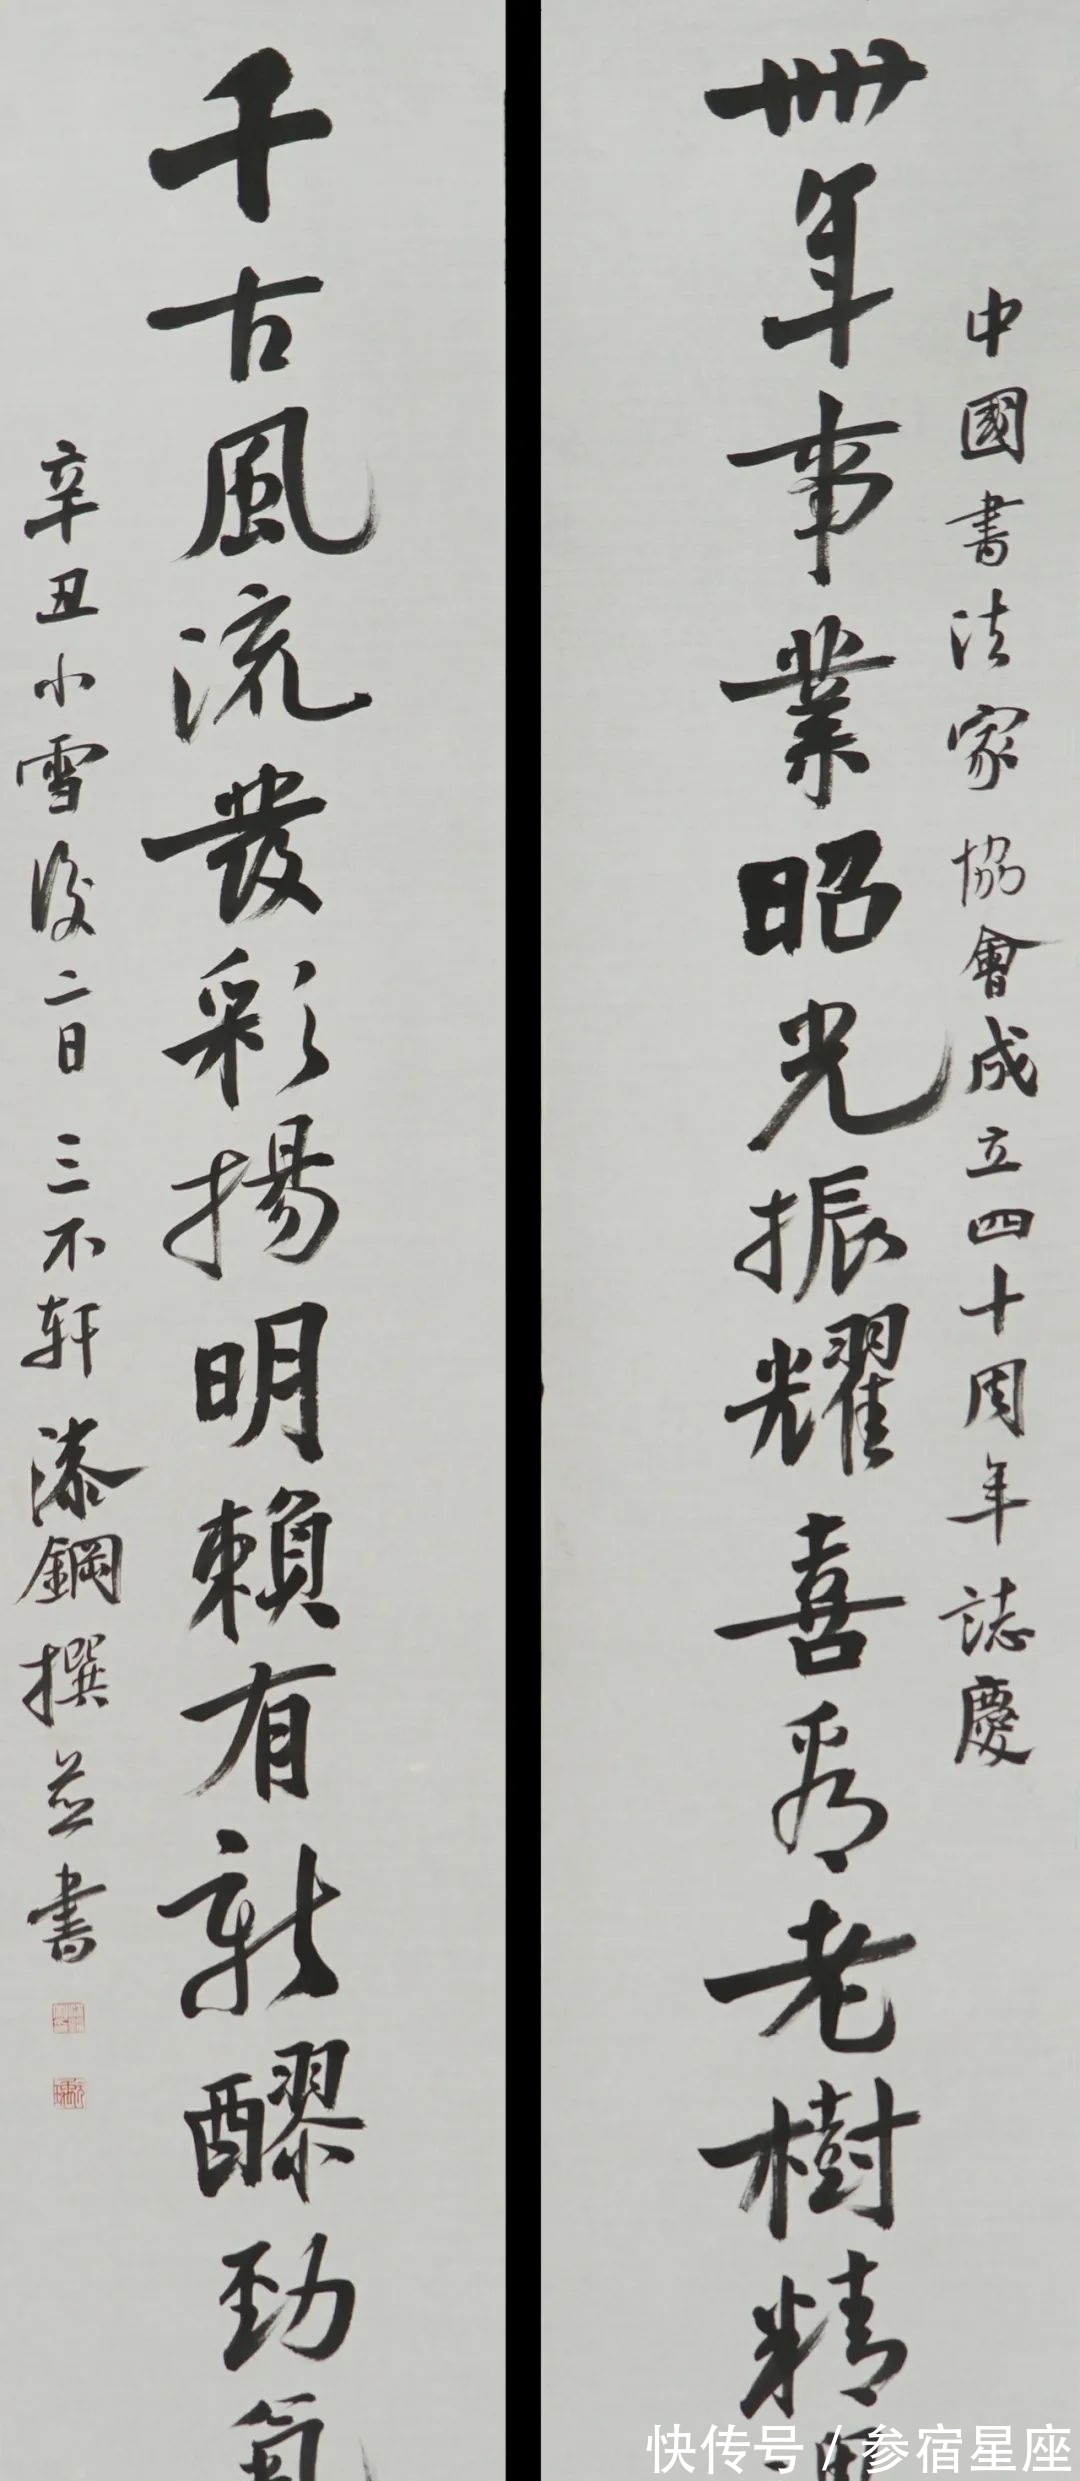 中國書法家協會成立四十周年誌慶
卌年事業昭光振耀喜看老樹精
千古風流發彩揚明賴有新醪勁
辛丑小雪後二日三不軒漆鋼撰並書
快传号/参宿星座